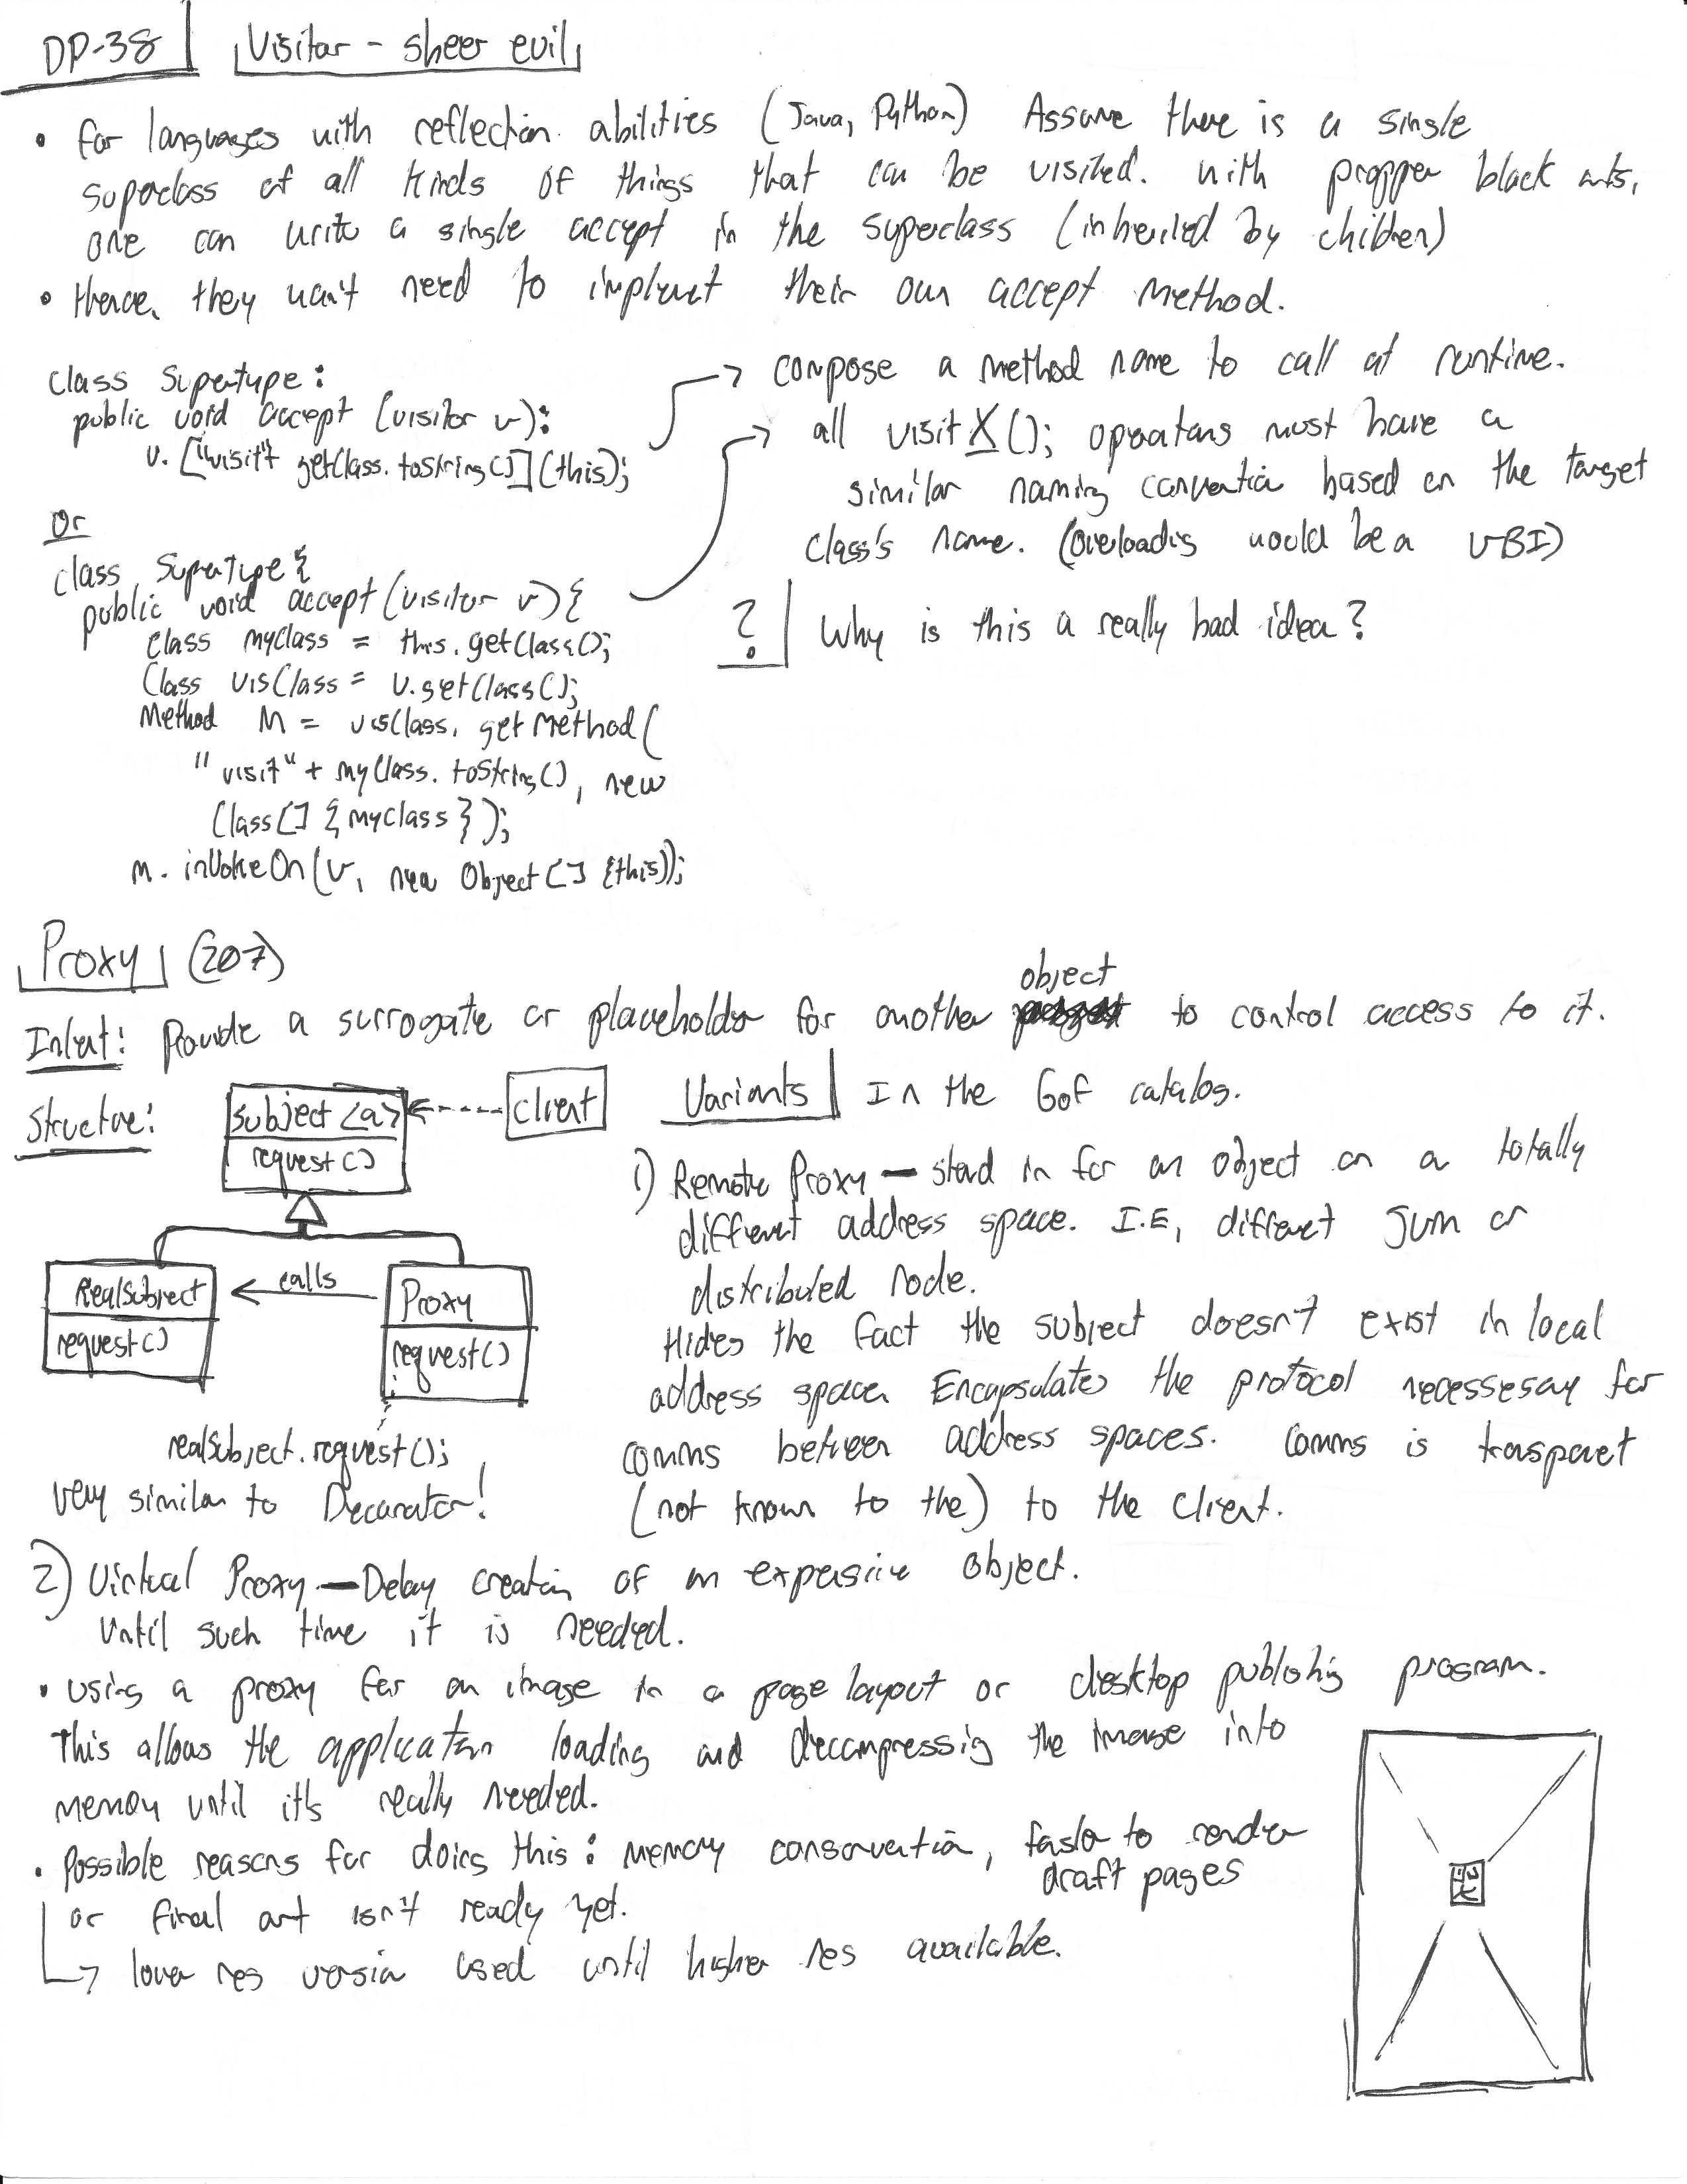 DP-38
Visitor - sheer evil
• for languages with reflection abilities (Java, Python) Assume there is a single
superclass of all kinds of things that can be visited. with propper black arts,
one can write a single accept in the superclass (inherited by children)
• Hence, they wan't need to implement their own accept method.
class Supertype:
public void accept (visitor v):
v. ["visit"+ getClass.toString()](this);
→ compose a method name to call at runtime.
→ all visitX(); operators must have a
similar naming convention based on the target
class's name. (overloading would be a VBI)
? Why is this a really bad idea?
or
class Supertype {
public void accept (visitor v) {
Class myClass = this.getClass();
Class visClass = v.getClass();
Method m = visClass.getMethod(
"visit" + myClass.toString(), new
Class[] {myClass});
m.invokeOn(v, new Object[] {this});
Proxy (207)
Intent: Provide a surrogate or placeholder for another object to control access to it.
Structure:
subject <a>
request()
client
RealSubject
request()
calls
Proxy
request()
realSubject.request();
very similar to Decorator!
Variants In the GoF catalog.
1) Remote Proxy — stand in for an object on a totally
different address space. I.E, different JVM or
distributed node.
Hides the fact the subject doesn't exist in local
address space. Encapsulates the protocol necessesay for
comms between address spaces. Comms is transparent
(not known to the) to the client.
2) Virtual Proxy — Delay creation of an expensive object.
Until such time it is needed.
• using a proxy for an image in a page layout or desktop publishing program.
This allows the application loading and decompressing the image into
memory until it's really needed.
• Possible reasons for doing this: memory conservation, faster to render
draft pages
or final art isn't ready yet.
→ lower res version used until higher res available.